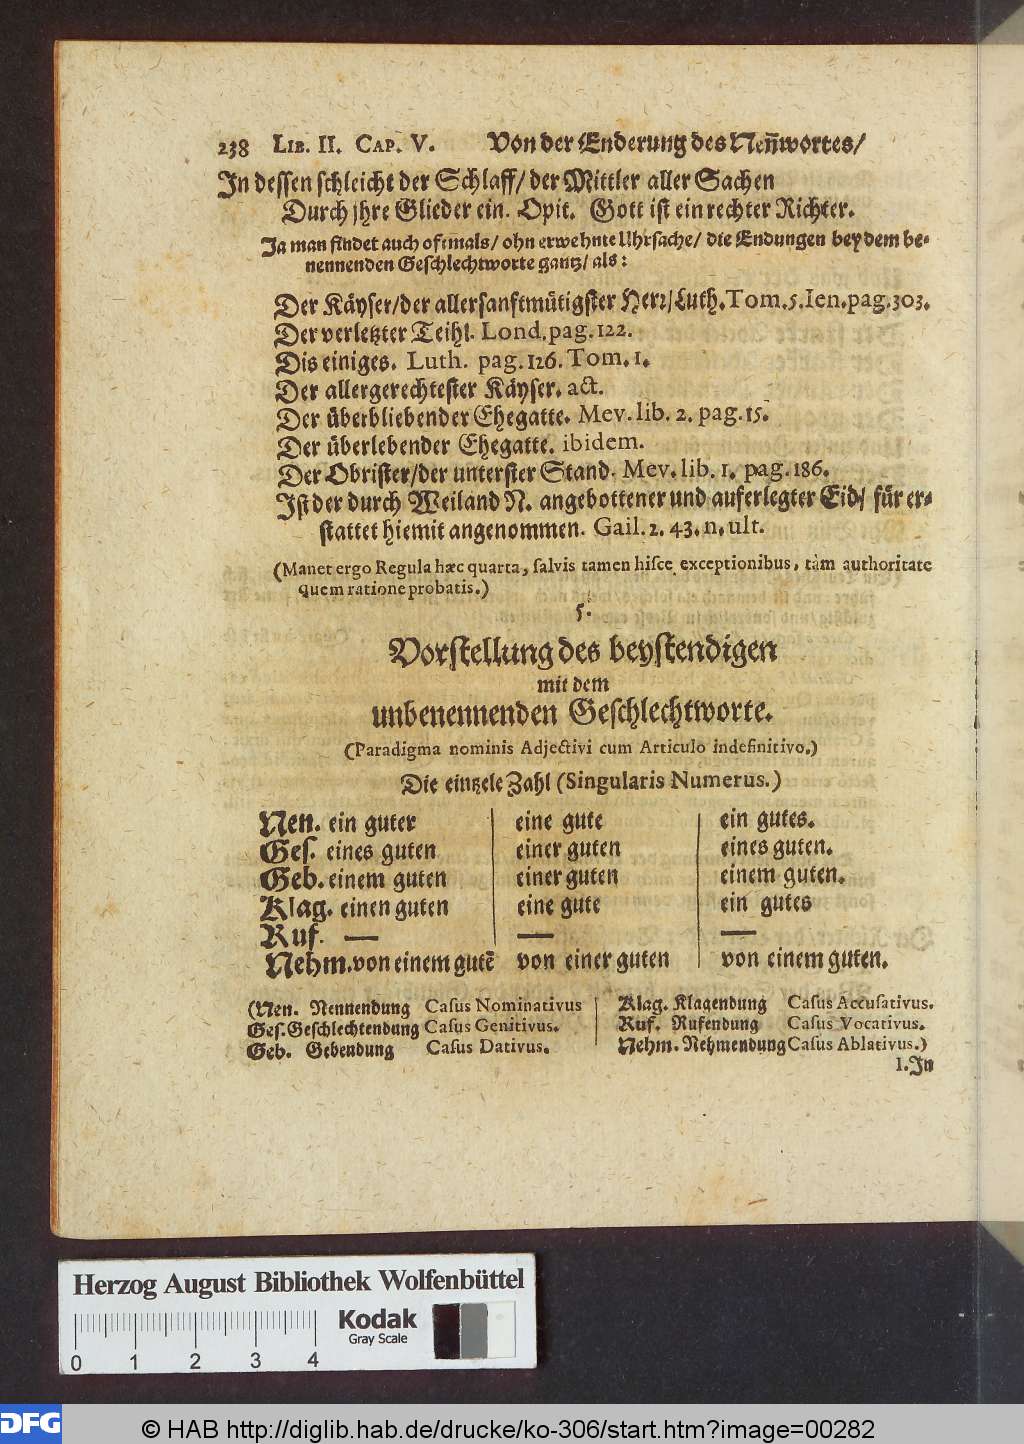 238 LIB. II. CAP. V. Von der Enderung des Nen̄wortes/
In dessen schleicht der Schlaff/ der Mittler aller Sachen
Durch jhre Glieder ein. Opit. Gott ist ein rechter Richter.
Ja man findet auch oftmals/ ohn erwehnte Uhrsache/ die Endungen bey dem be-
nennenden Geschlechtworte gantz/ als:
Der Käyser/der allersanftmütigster Herr/ Luth. Tom. 5. Ien. pag. 303.
Der verletzter Teihl. Lond. pag. 122.
Dis einiges. Luth. pag. 126. Tom. 1.
Der allergerechtester Käyser. act.
Der überbliebender Ehegatte. Mev. lib. 2. pag. 15.
Der überlebender Ehegatte. ibidem.
Der Obrister/der unterster Stand. Mev. lib. 1. pag. 186.
Ist der durch Weiland N. angebottener und auferlegter Eid/ für er-
stattet hiemit angenommen. Gail. 2. 43. n. ult.
(Manet ergo Regula hæc quarta, salvis tamen hisce exceptionibus, tàm authoritate
quem ratione probatis.)
5.
Vorstellung des beystendigen
mit dem
unbenennenden Geschlechtworte.
(Paradigma nominis Adjectivi cum Articulo indefinitivo.)
Die eintzele Zahl (Singularis Numerus.)
Nen. ein guter | eine gute | ein gutes.
Ges. eines guten | einer guten | eines guten.
Geb. einem guten | einer guten | einem guten.
Klag. einen guten | eine gute | ein gutes
Ruf. — | — | —
Nehm. von einem gutē | von einer guten | von einem guten.
(Nen. Nennendung Casus Nominativus | Klag. Klagendung Casus Accusativus.
Ges. Geschlechtendung Casus Genitivus. | Ruf. Rufendung Casus Vocativus.
Geb. Gebendung Casus Dativus. | Nehm. Nehmendung Casus Ablativus.)
1. In
Herzog August Bibliothek Wolfenbüttel
Kodak
Gray Scale
0 1 2 3 4
DFG © HAB http://diglib.hab.de/drucke/ko-306/start.htm?image=00282